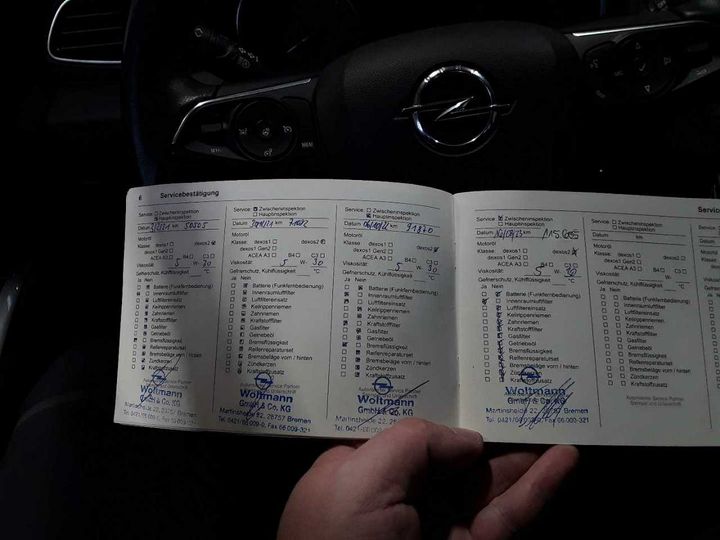 6 Servicebestätigung
Service: Zwischeninspektion
Hauptinspektion
Datum km 50505
Motoröl
Klasse: dexos1 dexos2
dexos1 Gen2
ACEA A3 B4 C3
Viskosität: 5 W- 30
Gefrierschutz, Kühlflüssigkeit °C
Ja Nein
Batterie (Funkfernbedienung)
Innenraumluftfilter
Luftfiltereinsatz
Keilrippenriemen
Zahnriemen
Kraftstofffilter
Gasfilter
Getriebeöl
Bremsflüssigkeit
Reifenreparaturset
Bremsbeläge vorn / hinten
Zündkerzen
Kraftstoffzusatz
Woltmann
GmbH & Co. KG
Martinsheide 22, 28757 Bremen
Tel. 0421/66 009-0, Fax 66 009-321
Service: Zwischeninspektion
Hauptinspektion
Datum km
Motoröl
Klasse: dexos1 dexos2
dexos1 Gen2
ACEA A3 B4 C3
Viskosität: 5 W- 30
Gefrierschutz, Kühlflüssigkeit °C
Ja Nein
Batterie (Funkfernbedienung)
Innenraumluftfilter
Luftfiltereinsatz
Keilrippenriemen
Zahnriemen
Kraftstofffilter
Gasfilter
Getriebeöl
Bremsflüssigkeit
Reifenreparaturset
Bremsbeläge vorn / hinten
Zündkerzen
Kraftstoffzusatz
Woltmann
GmbH & Co. KG
Martinsheide 22, 28757 Bremen
Tel. 0421/66 009-0, Fax 66 009-321
Service: Zwischeninspektion
Hauptinspektion
Datum km 91870
Motoröl
Klasse: dexos1 dexos2
dexos1 Gen2
ACEA A3 B4 C3
Viskosität: 5 W- 30
Gefrierschutz, Kühlflüssigkeit °C
Ja Nein
Batterie (Funkfernbedienung)
Innenraumluftfilter
Luftfiltereinsatz
Keilrippenriemen
Zahnriemen
Kraftstofffilter
Gasfilter
Getriebeöl
Bremsflüssigkeit
Reifenreparaturset
Bremsbeläge vorn / hinten
Zündkerzen
Kraftstoffzusatz
Woltmann
GmbH & Co. KG
Martinsheide 22, 28757 Bremen
Tel. 0421/66 009-0, Fax 66 009-321
Service: Zwischeninspektion
Hauptinspektion
Datum
Motoröl
Klasse: dexos1 dexos2
dexos1 Gen2
ACEA A3 B4 C3
Viskosität: 5 W- 30
Gefrierschutz, Kühlflüssigkeit °C
Ja Nein
Batterie (Funkfernbedienung)
Innenraumluftfilter
Luftfiltereinsatz
Keilrippenriemen
Zahnriemen
Kraftstofffilter
Gasfilter
Getriebeöl
Bremsflüssigkeit
Reifenreparaturset
Bremsbeläge vorn / hinten
Zündkerzen
Kraftstoffzusatz
Woltmann
GmbH & Co. KG
Martinsheide 22, 28757 Bremen
Tel. 0421/66 009-0, Fax 66 009-321
Service: Zwischeninspektion
Hauptinspektion
Datum km
Motoröl
Klasse: dexos1 dexos2
dexos1 Gen2
ACEA A3 B4 C3
Viskosität: W-
Gefrierschutz, Kühlflüssigkeit °C
Ja Nein
Batterie (Funkfernbedienung)
Innenraumluftfilter
Luftfiltereinsatz
Keilrippenriemen
Zahnriemen
Kraftstofffilter
Gasfilter
Getriebeöl
Bremsflüssigkeit
Reifenreparaturset
Bremsbeläge vorn / hinten
Zündkerzen
Kraftstoffzusatz